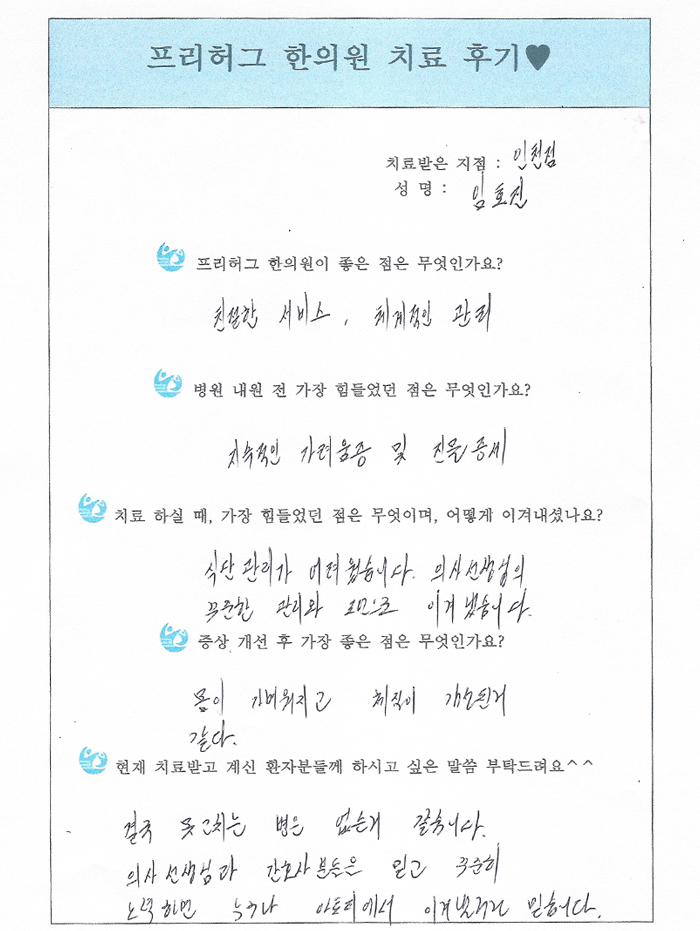 프리허그 한의원 치료 후기♥
치료받은 지점 : 인천점
성 명 : 임호선
프리허그 한의원이 좋은 점은 무엇인가요?
친절한 서비스, 체계적인 관리
병원 내원 전 가장 힘들었던 점은 무엇인가요?
지속적인 가려움증 및 진물 증세
치료 하실 때, 가장 힘들었던 점은 무엇이며, 어떻게 이겨내셨나요?
식단관리가 어려웠습니다. 의사선생님의
꾸준한 관리와 조언으로 이겨냈습니다.
증상 개선 후 가장 좋은 점은 무엇인가요?
몸이 가벼워지고 체질이 개선된거
같다.
현재 치료받고 계신 환자분들께 하시고 싶은 말씀 부탁드려요^^
결국 못고치는 병은 없는거 같습니다.
의사선생님과 간호사분들은 믿고 꾸준히
노력하면 누구나 아토피에서 이겨낼거라 믿습니다.